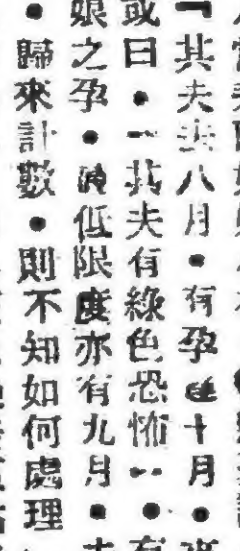 其夫去八月・有孕　十月・
或曰・一其夫有綠色恐怖一・
娘之孕・最低限度亦有九月・
・歸來計數・則不知如何處理